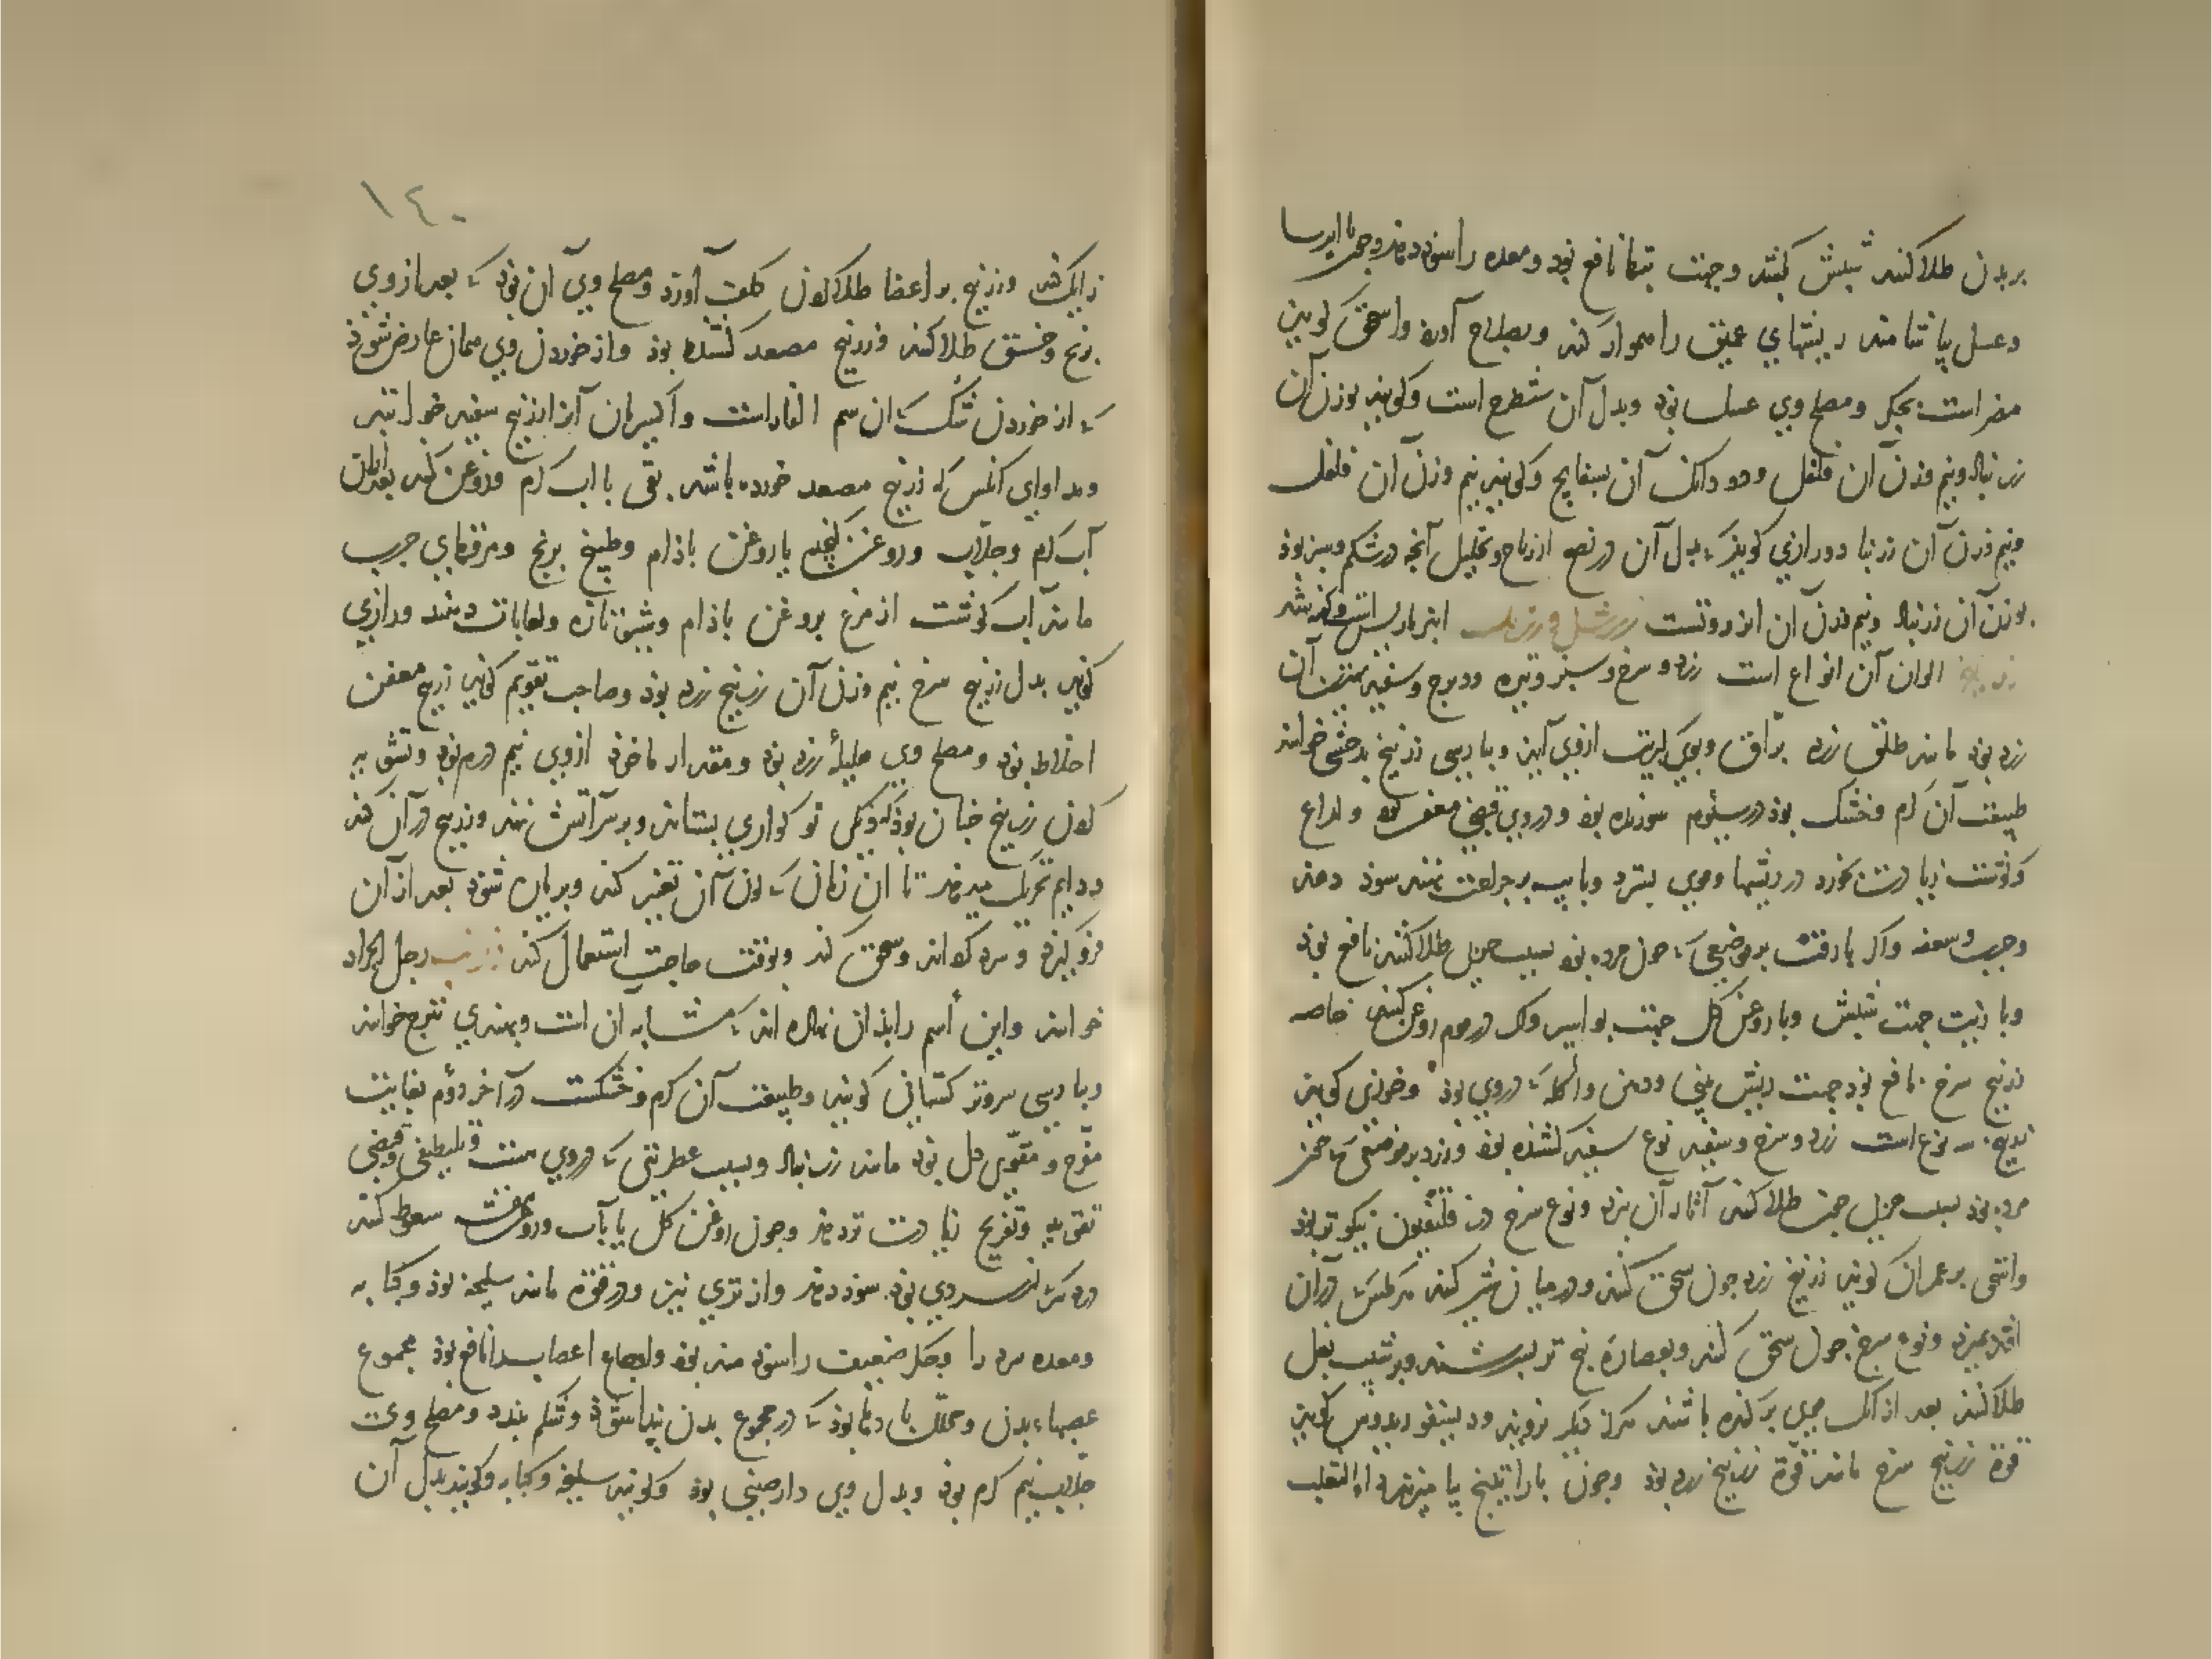 بر بدن طلا کنند شپش بکشد و جهت تبها نافع بود و معده را سود دهد و چون با ایرسا
و عسل بیاشامند ریشهای عمیق را هموار کند و بصلاح آورد و اسحق گوید
مضر است بجگر و مصلح وی عسل بود و بدل آن شیطرج است و گویند بوزن آن
زرنباد و نیم وزن آن فلفل و دو دانک آن بسفایج و گویند نیم وزن آن فلفل
و نیم وزن آن زرنبا و رازی گوید بدل آن در نفع ارباح و تحلیل آنچه در شکم و سر بود
بوزن آن زرنباد و نیم وزن آن انزروتست زرشک انبرباریس است و گفته شد
زرنیخ الوان آن انواع است زرد و سرخ و سبز و تیره و سفید بهترین آن
زرد بود مانند طلق زرد براق و بوی کبریت ازوی آید و بپارسی زرنیخ بدخشی خوانند
طبیعت آن گرم و خشک بود در سیوم سوزنده بود و در وی قبضی معفن بود و لذاع
گوشت زیادت بخورد در ریشها و موی بسترد و با پیه بر جراحت نهند سود دهد
و جرب و سعفه و اگر با زفت بر موضعی که خون مرده بود بسبب ضربت طلا کنند نافع بود
و با زیت جهت شپش و با روغن گل جهت بواسیر و اگر در موم روغن کنند خاصه
زرنیخ سرخ نافع بود جهت ریش بینی و دهن و آکله که در وی بود و خوزی گوید
زرنیخ سه نوع است زرد و سرخ و سفید نوع سفید کشنده بود و زرد بر موضعی که خون
مرده بود بسبب ضربت طلا کنند آثار آن ببرد و نوع سرخ در فلتفیون نیکوتر بود
و اسحق بن عمران گوید زرنیخ زرد چون سحق کنند و در میان شیر کنند هر مگس که در آن
افتد بمیرد و نوع سرخ چون سحق کنند و بعصاره بنج تر بسرشند و بر شیب بغل
طلا کنند بعد از آنک موی بر کنده باشند هرگز دیگر نروید و دیسقوریدوس گوید
قوة زرنیخ سرخ مانند قوة زرنیخ زرد بود و چون با راتینج بیامیزند داء الثعلب
۱٤۰
زایل کند و زرنیخ بر اعضا طلا کردن کلف آورد و مصلح وی آن بود که بعد از وی
برنج و خسق طلا کنند و زرنیخ مصعد کشنده بود و از خوردن وی همان عارض شود
که از خوردن شک که آن سم الفار است و اکسیریان آنرا زرنیخ سفید خوانند
و مداوای آنکس که زرنیخ مصعد خورده باشد بقی با آب گرم و روغن کنند بعد از آن
آب گرم و جلاب و روغن کنجد یا روغن بادام و طبیخ برنج و مرقهای چرب
مانند آب گوشت از مرغ بروغن بادام و شیر تازه و لعابات دهند و رازی
گوید بدل زرنیخ سرخ نیم وزن آن زرنیخ زرد بود و صاحب تقویم گوید زرنیخ معفن
اخلاط بود و مصلح وی هلیله زرد بود و مقدار ماخوذ ازوی نیم درم بود و تشویه
کردن زرنیخ چنان بود که دیگی نو گواری بستانند و بر سر آتش نهند و زرنیخ در آن کنند
و دایم تحریک میدهند تا آن زمان که لون آن تغیر کند و بریان شود بعد از آن
فرو گیرند و سرد گردانند و سحق کنند و بوقت حاجت استعمال کنند زرنب رجل الجراد
خوانند و این اسم را بدان نهاده اند که مشابه آن است و بهندی تترج خوانند
و بپارسی سرو ترکستانی گویند و طبیعت آن گرم و خشکست در آخر دوم بغایت
مفرح و مقوی دل بود مانند زرنباد و بسبب عطریتی که در وی هست و تلطیفی و قبضی
تقویه و تفریح زیادت تر دهد و چون روغن گل یا بآب و روغن بنفشه سعوط کنند
درد سر که از سردی بود سود دهد و از تری نیز و در قوة مانند سلیخه بود و کبابه
و معده سرد را و جگر ضعیف را سودمند بود و اوجاع اعصاب را نافع بود مجموع
عصبهاء بدن و محلل بادها بود که در مجموع بدن پیدا شود و شکم ببندد و مصلح وی
جلاب نیم گرم بود و بدل وی دارچینی بود و گویند سلیخه و کبابه و گویند بدل آن